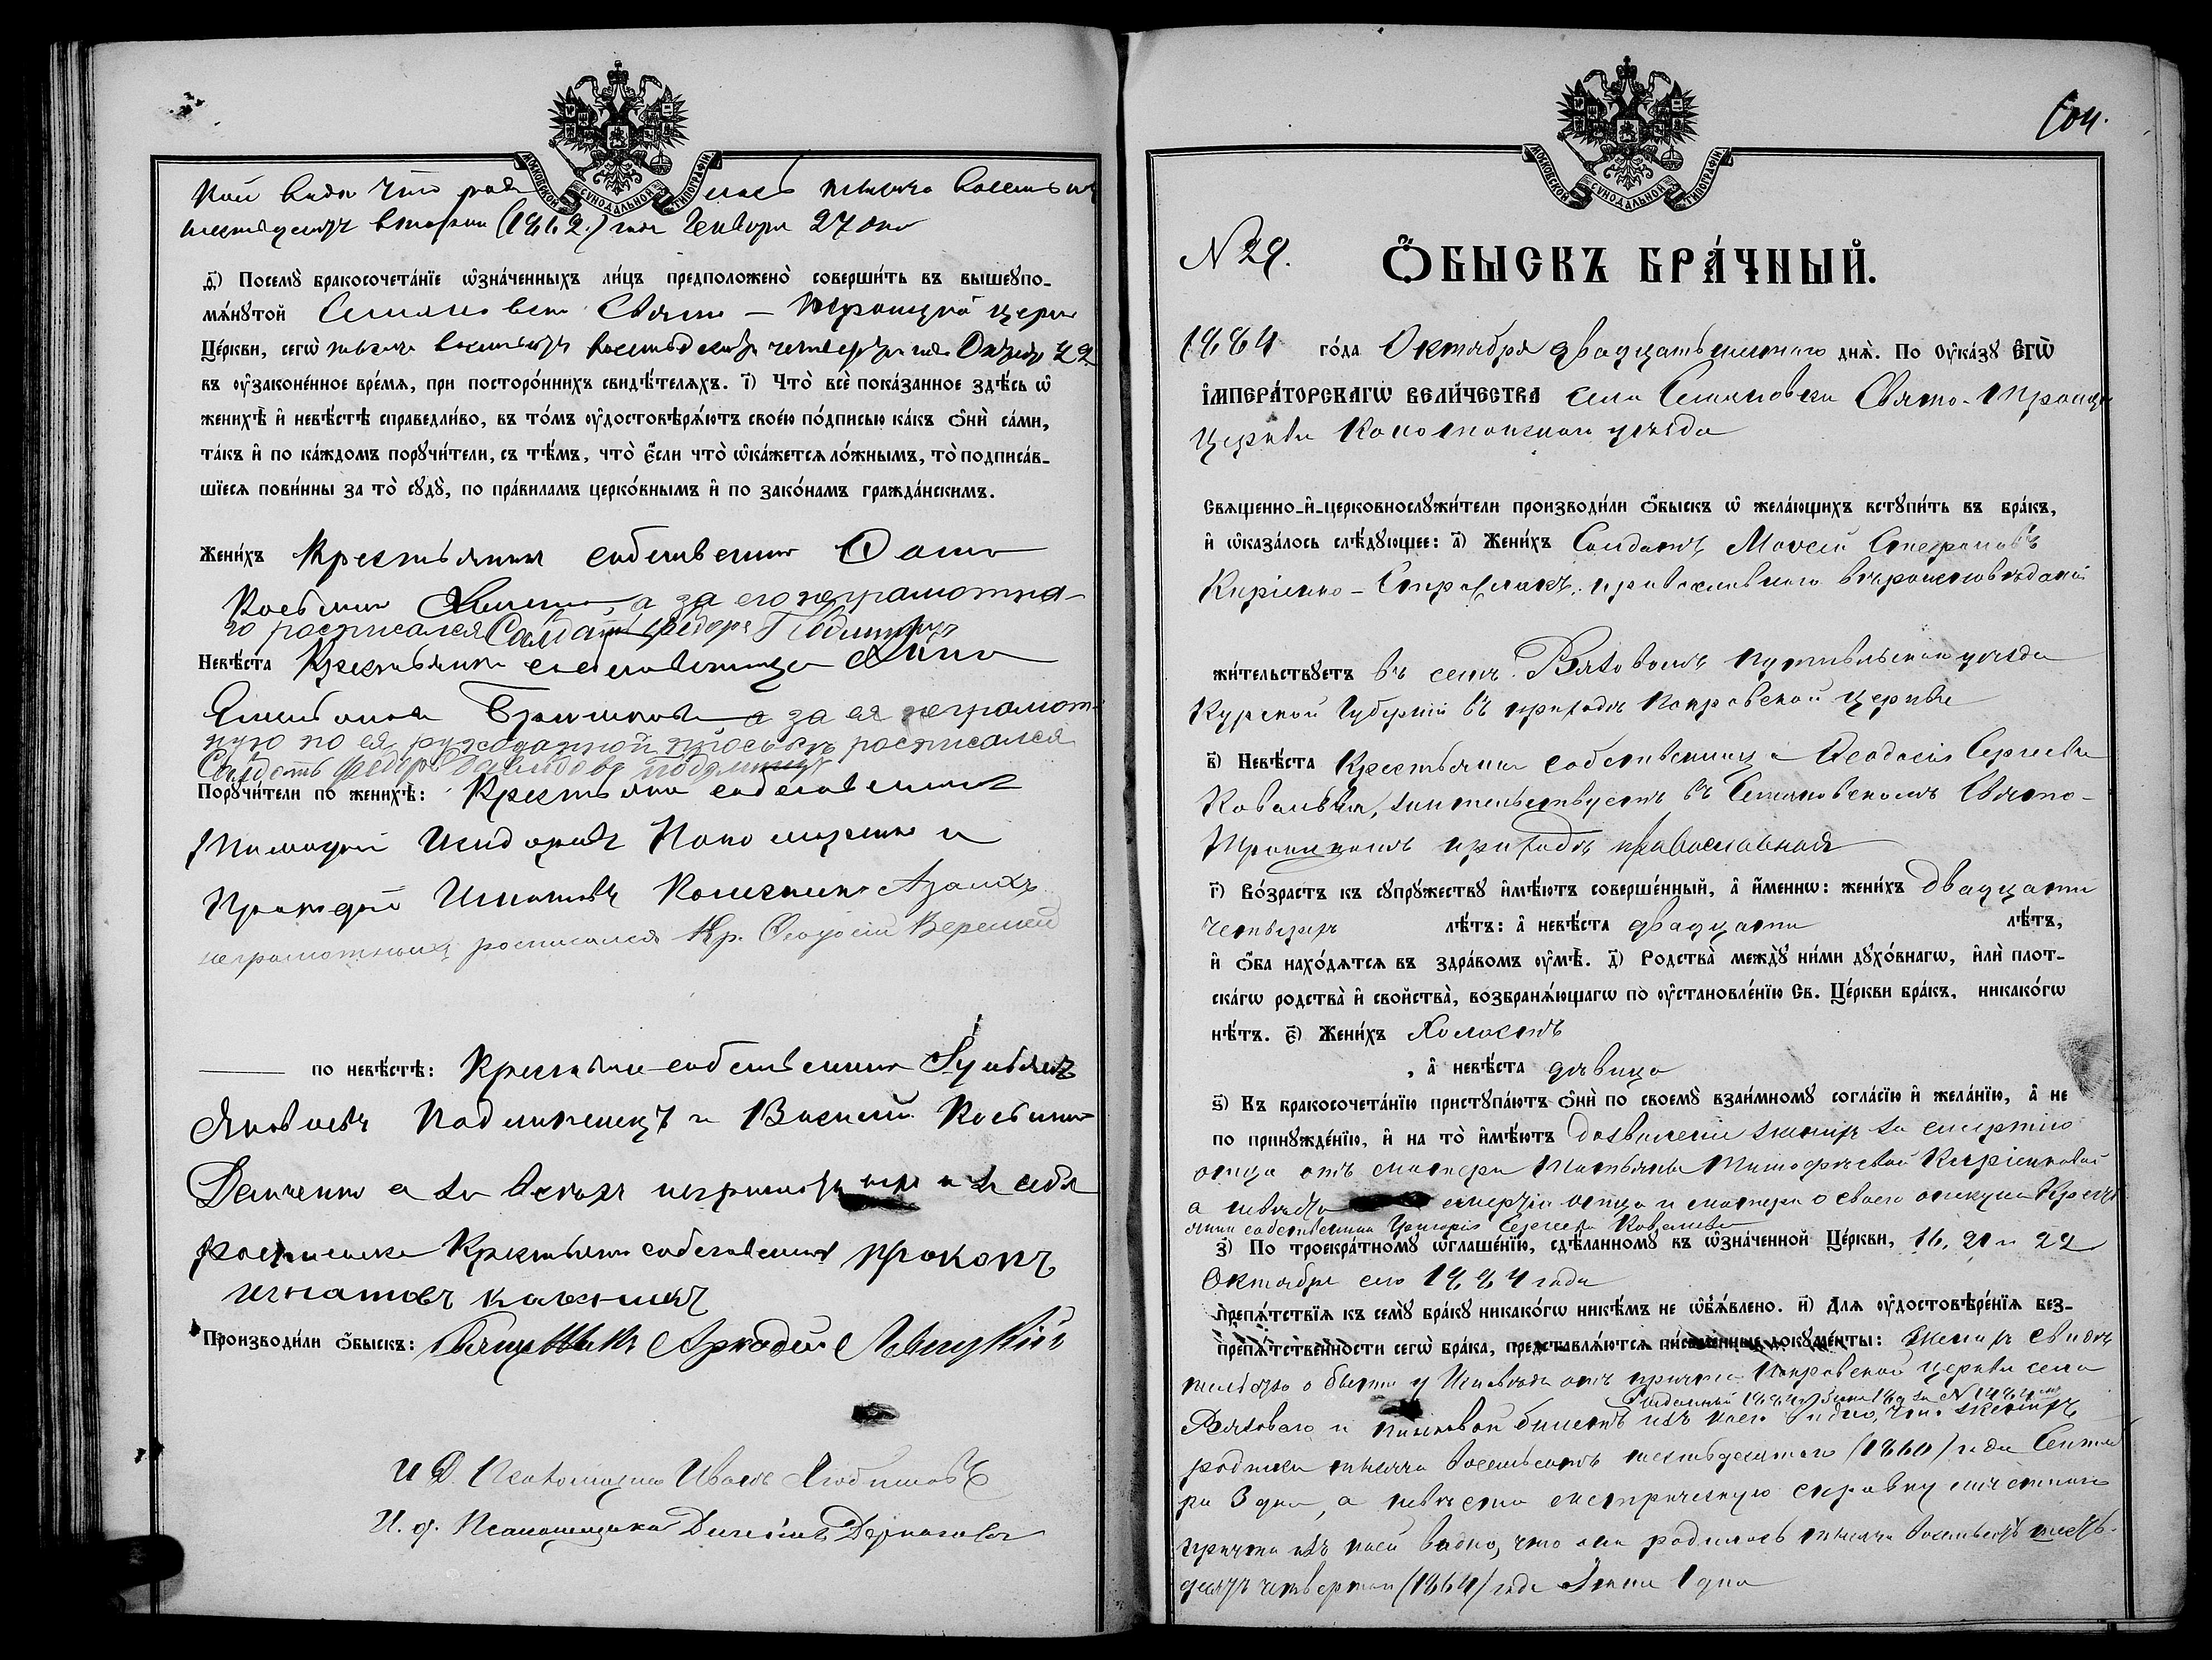 МОСКОВСКОЙ СѴНОДАЛЬНОЙ ТИПОГРАФІИ
кой видно что тысяча восемьсотъ
(1862) года Генваря 27 дня
д҃) Посемꙋ̀ бракосочета́нїе ѡ҆зна́ченныхъ ли́цъ предположено̀ соверши́ть въ вышеꙋпо-
мѧ́нꙋтой Свято – Троицкой
Це́ркви, сегѡ̀ тысяча восемьсотъ восемьдесятъ четвертаго года
въ ᲂу҆законе́нное вре́мѧ, при посторо́ннихъ свидѣ́телѧхъ. і҃) Что̀ всѐ пока́занное здѣ́сь ѡ҆
женихѣ̀ и҆ невѣ́стѣ справедли́во, въ то́мъ ᲂу҆достовѣрѧ́ютъ свое́ю по́дписью ка́къ ѻ҆нѝ са́ми,
та́къ и҆ по ка́ждомъ порꙋчи́тели, съ тѣ́мъ, что̀ є҆́сли что̀ ѡ҆ка́жетсѧ ло́жнымъ, то̀ подписа́в-
шїесѧ пови́нны за то̀ сꙋдꙋ̀, по пра́виламъ церко́внымъ и҆ по зако́намъ гражда́нскимъ.
Жени́хъ Крестьянинъ собственникъ Фома
а за его неграмотна-
го росписался Солдатъ Федоръ
Невѣ́ста Крестьянка собственница Анна
а за ея неграмот-
ную по ея рукоданной просьбѣ росписался
Солдатъ Федоръ Давидовъ
Порꙋчи́тели по женихѣ̀: Крестьяне собственники
Тимофей Исидоровъ Пономаренко и
Игнатовъ
неграмотныхъ росписался Кр. Феодосій Веремей
по невѣ́стѣ: Крестьяне собственники
Яковлевъ и Василій Косьминъ
Демченко а за всѣхъ неграмотныхъ и за себя
росписался Крестьянинъ собственникъ Прокопъ
Игнатовъ
Производи́ли ѻ҆́быскъ: Священникъ Аркадій Левицкій
И. Д. Псаломщика Иванъ
И. д. Псаломщика
104.
МОСКОВСКОЙ СѴНОДАЛЬНОЙ ТИПОГРАФІИ
N 29.
Ѻ҆́БЫСКЪ БРА́ЧНЫЙ.
1884 го́да Октября двадцать шестаго днѧ̀. По Оу҆ка́зꙋ Є҆гѡ̀
І҆мпера́торскагѡ Вели́чества села Семяновки Свято-Троицкой
Церкви Конотопскаго уѣзда
Свѧщенно-и҆-церковнослꙋжи́тели производи́ли ѻ҆́быскъ ѡ҆ жела́ющихъ встꙋпи́ть въ бра́къ,
и҆ ѡ҆каза́лось слѣ́дꙋющее: а҃) Жени́хъ Солдатъ Моисей Стефановъ
Киріенко – православнаго вѣроисповѣданія
жи́тельствꙋетъ въ селѣ Вязовомъ Путивльскаго уѣзда
Курской Губерніи въ приходѣ Покровской Церкви
в҃) Невѣ́ста Крестьянка собственница Феодосія Сергѣева
Ковалева, жительствуетъ въ Семяновскомъ Свято-
Троицкомъ приходѣ православная
г҃) Во́зрастъ къ сꙋпрꙋ́жествꙋ и҆мѣ́ютъ соверше́нный, а҆ и҆́меннѡ: жени́хъ двадцати
четырехъ лѣ́тъ: а҆ невѣ́ста двадцати лѣ́тъ,
и҆ ѻ҆́ба нахо́дѧтсѧ въ здра́вомъ ᲂу҆мѣ̀. д҃) Родства̀ междꙋ̀ ни́ми дꙋхо́внагѡ, и҆лѝ плот-
ска́гѡ родства̀ и҆ свойства̀, возбранѧ́ющагѡ по ᲂу҆становле́нїю Св. Це́ркви бра́къ, никако́гѡ
нѣ́тъ. є҃) Жени́хъ Холостъ
, а҆ невѣ́ста дѣвица
ѕ҃) Къ бракосочета́нїю пристꙋпа́ютъ ѻ҆нѝ по своемꙋ̀ взаи́мномꙋ согла́сїю и҆ жела́нїю, а҆ не
по принꙋжде́нїю, и҆ на то̀ и҆мѣ́ютъ дозволеніе женихъ за смертію
отца отъ матери Татьяны Тимофѣевой Киріенковой
а невѣста смертію отца и матери о своего опекуна Крестья
нина собственника Григорія Сергѣева Ковалева
з҃) По троекра́тномꙋ ѡ҆глаше́нїю, сдѣ́ланномꙋ въ ѡ҆зна́ченной Це́ркви, 16, 21 и 22
Октября сего 1884 года
препѧ́тствїѧ къ семꙋ̀ бра́кꙋ никако́гѡ никѣ́мъ не ѡ҆б̾ѧ́влено. и҃) Длѧ ᲂу҆достовѣре́нїѧ без-
препѧ́тственности сегѡ̀ бра́ка, представлѧ́ютсѧ пи́сьменные докꙋме́нты: женихъ свидѣ
тельство о бытіи у Исповѣди отъ причта Покровской церкви села
Вязоваго и билетъ изъ коего видно, что женихъ
родился тысяча восемьсотъ шестьдесятаго (1860) года Сентяб
ря 3 дня, а невѣста метрическую справку мѣстнаго
причта изъ коей видно, что она родилась тысяча восемьсотъ шесть-
десятъ четвертаго (1864) года 1 дня